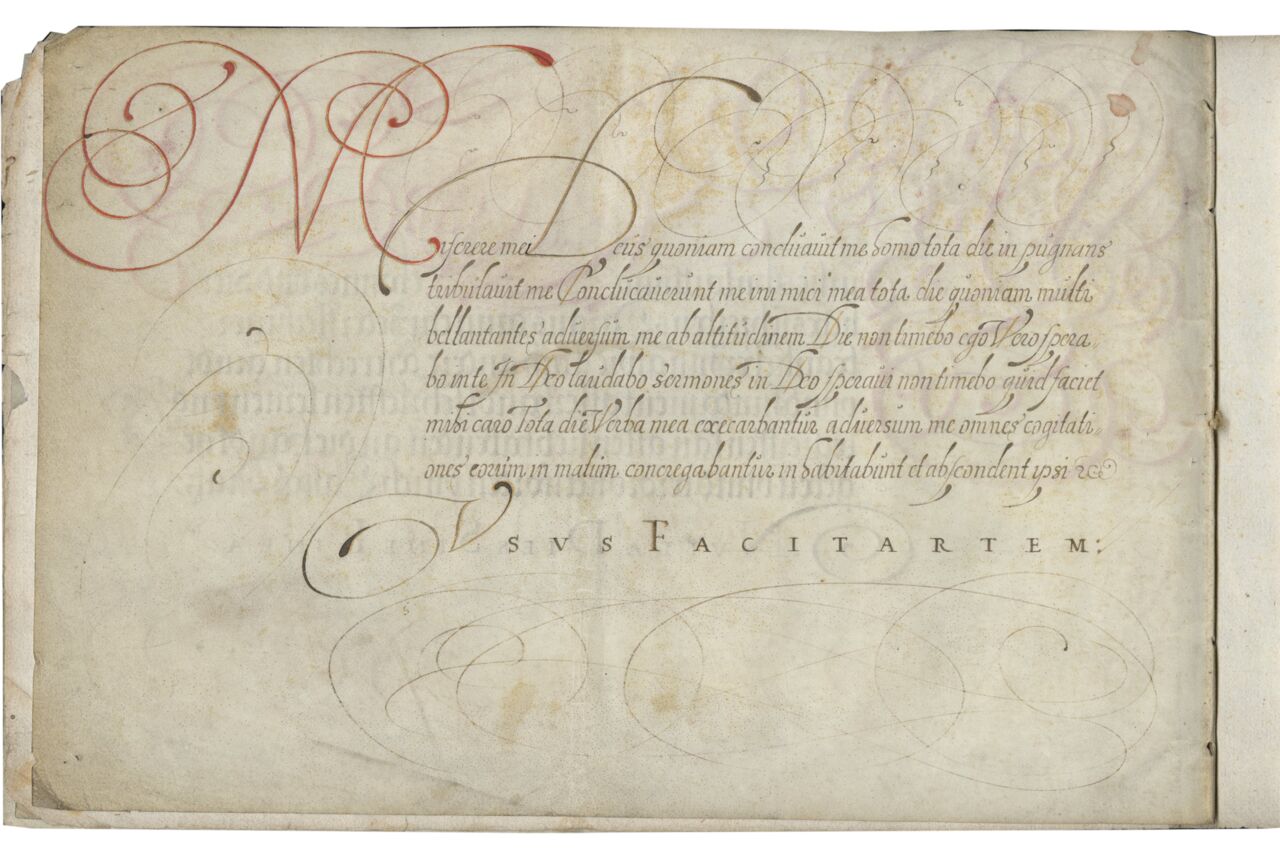 Miserere mei Deus quoniam conclucauit me homo tota die in pugnans
tribulauit me Conclucauerunt me ini mici mea tota die quoniam multi
bellantantes aduersum me ab altitudinem Die non timebo ego Vero spera-
bo in te In Deo laudabo sermones in Deo speraui non timebo quid faciet
mihi caro Tota die Verba mea execarbantur aduersum me omnes cogitati-
ones eorum in malum concregabantur in habitabunt et abscondent ipsi
VSVS FACIT ARTEM: